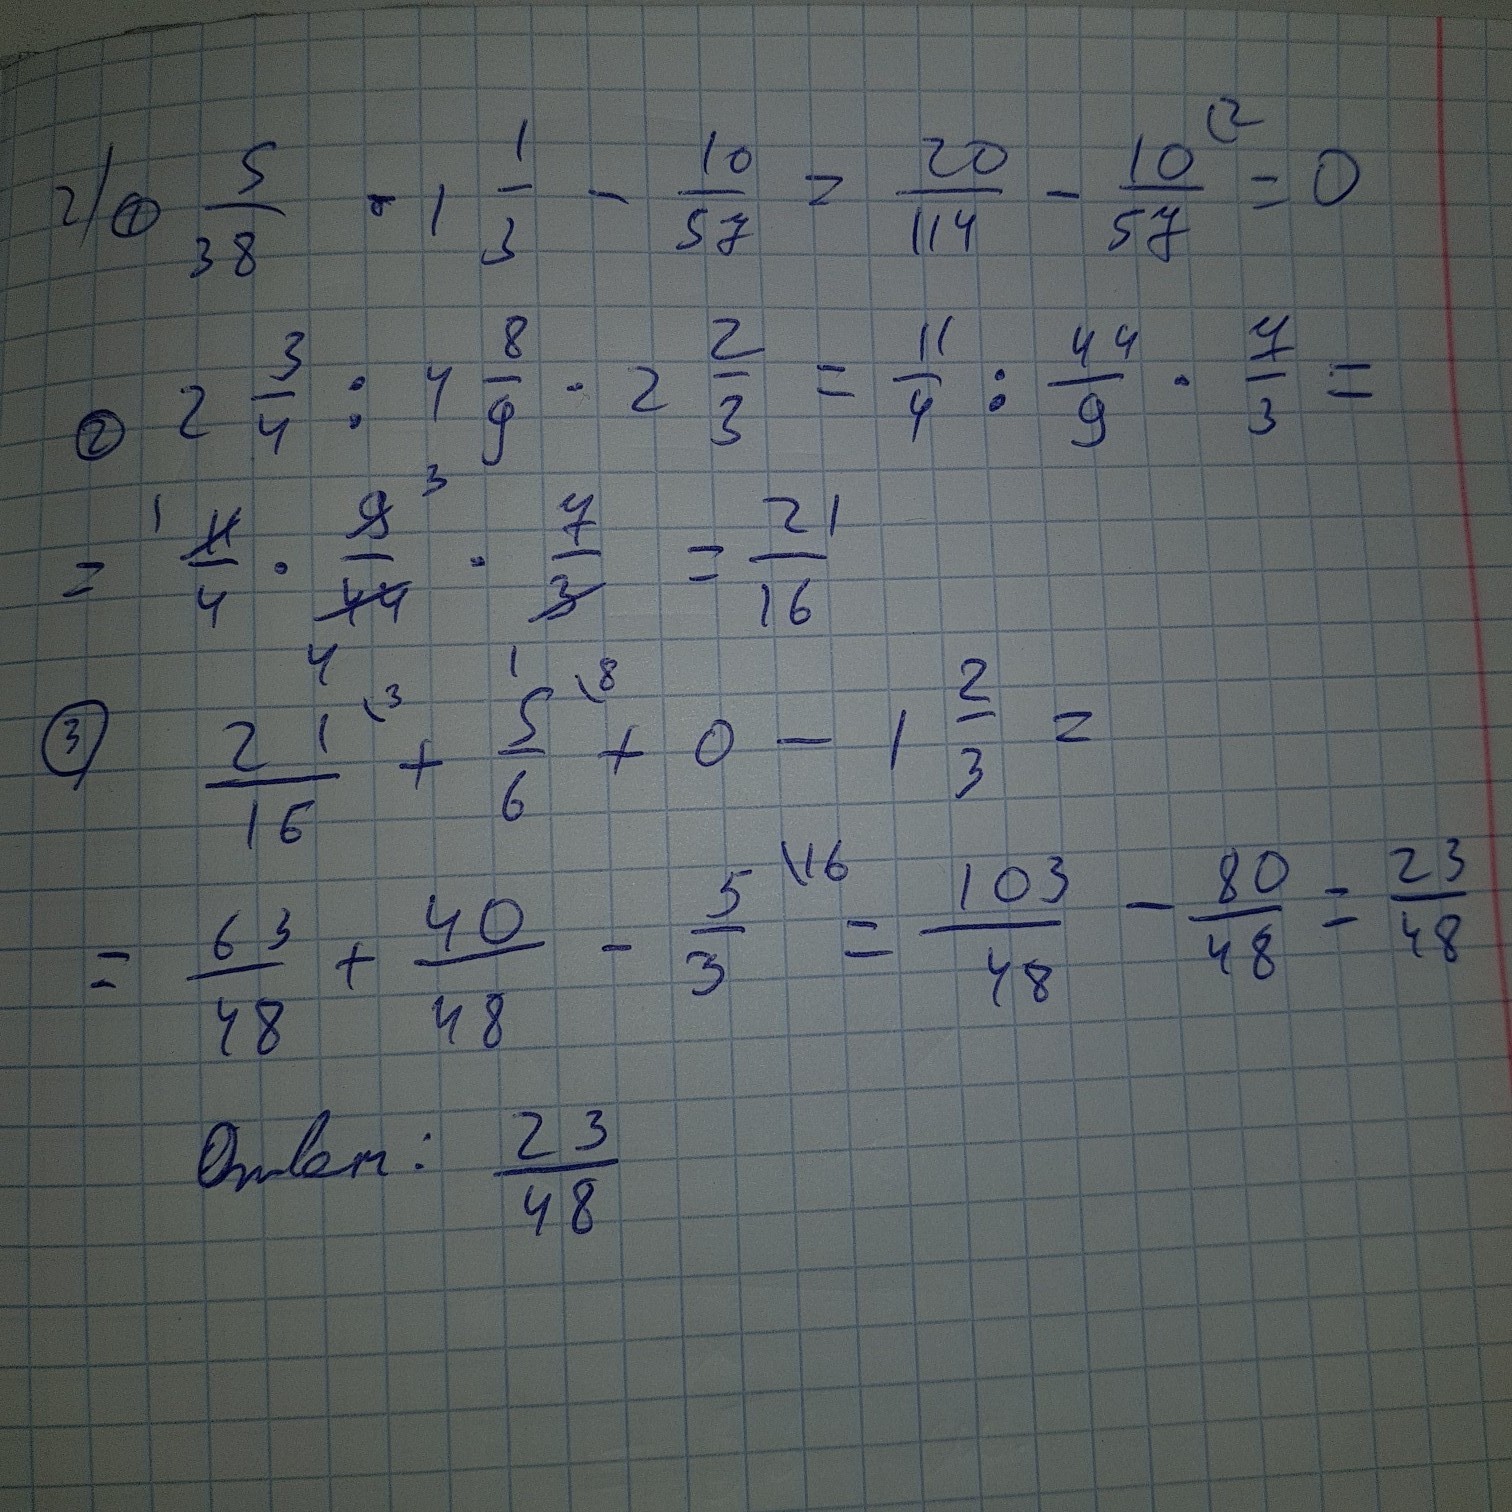 2) ① 5/38 · 1 1/3 - 10/57 = 20/114 - 10/57 \2 = 0
② 2 3/4 : 4 8/9 · 2 2/3 = 11/4 : 44/9 · 7/3 =
= 11/4 1 · 9/44 3 4 · 7/3 1 = 21/16
③ 21/16 \3 + 5/6 \8 + 0 - 1 2/3 =
= 63/48 + 40/48 - 5/3 \16 = 103/48 - 80/48 = 23/48
Ответ: 23/48